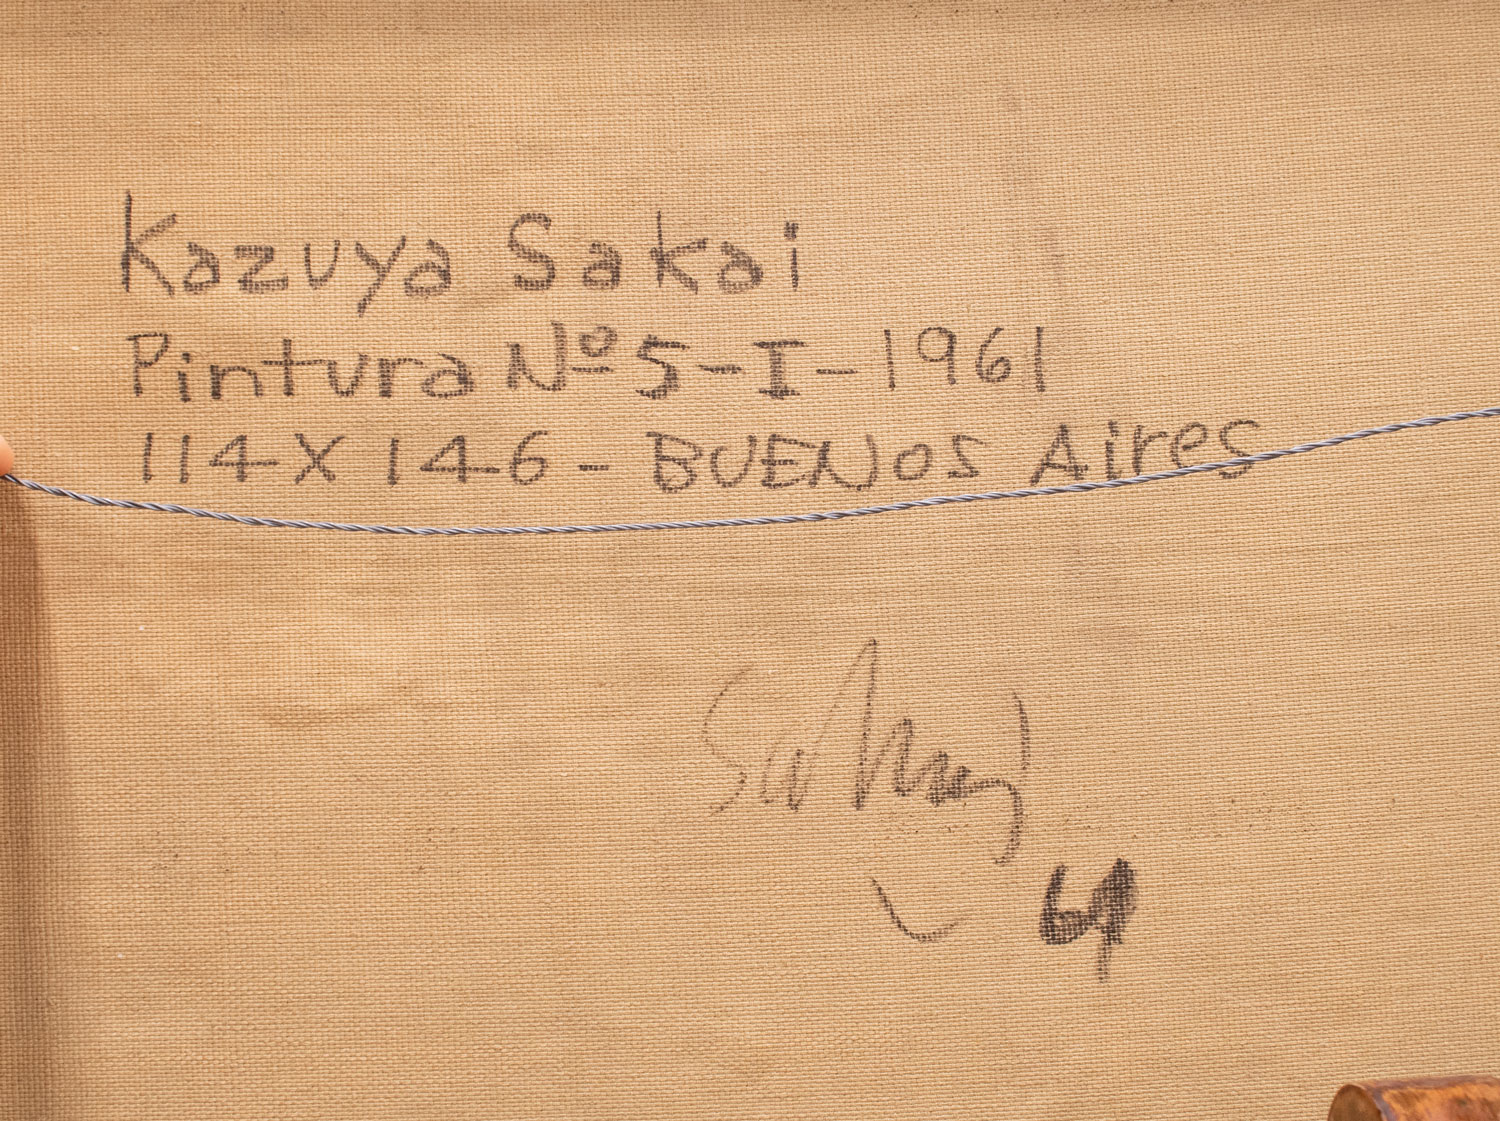 Kazuya Sakai
Pintura Nº 5-I-1961
114 X 146 - BUENOS Aires
Sakai